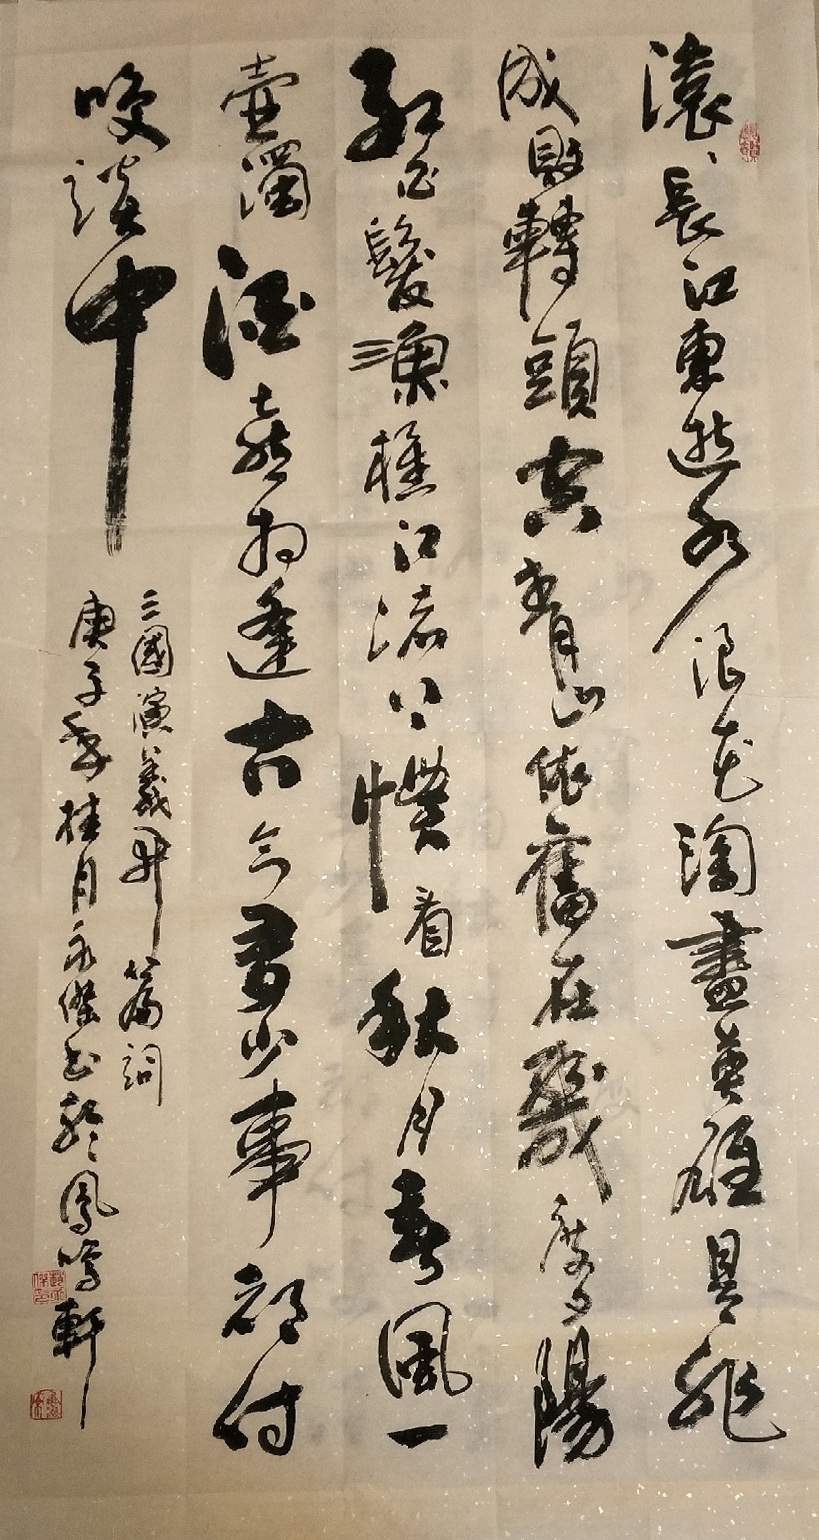 滚々長江東逝水浪花淘盡英雄是非
成敗轉頭空青山依舊在幾度夕陽
紅白髮漁樵江渚上慣看秋月春風一
壺濁酒喜相逢古今多少事都付
咲談中
三國演義開篇詞
庚子年桂月永傑书於鳳鳴軒